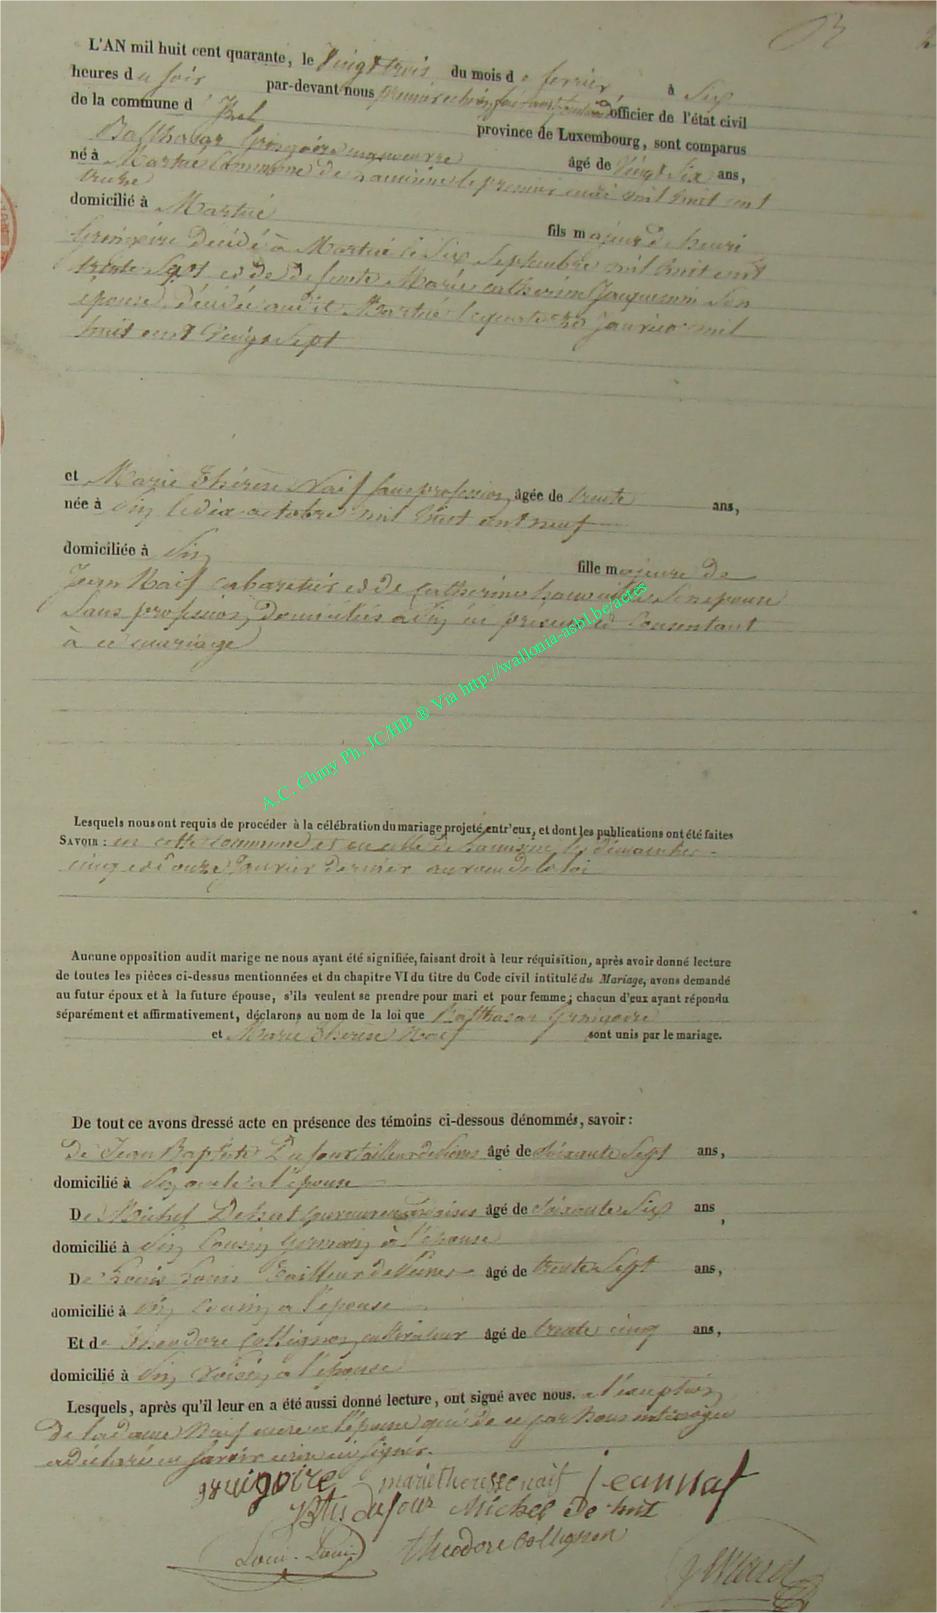 L'AN mil huit cent quarante, le Vingt trois du mois de fevrier, à Six
heures du soir par-devant nous premier echevin officier de l'état civil
de la commune d' Izel province de Luxembourg, sont comparus
Balthazar Gringoire manoeuvre âgé de Vingt Six ans,
né à Martué Commune de le premier mai mil huit cent
treize
domicilié à Martué fils majeur de henri
Gringoire décédé à Martué le Six Septembre mil huit cent
trente Sept et de defunte Marie catherine Jacquemin Son
épouse décédée audit Martué le quatre janvier mil
huit cent Vingt Sept
et Marie Thérèse Naif Sans profession, âgée de trente ans,
née à le dix octobre mil huit cent neuf
domiciliée à fille majeure de
Jean Naif cabaretier et de Catherine Son epouse
Sans profession, domiciliés à ici presents et Consentant
à ce mariage
A.C. Chiny Ph. JC/HB ® Via http://wallonia-asbl.be/actes
Lesquels nous ont requis de procéder à la célébration du mariage projeté entr'eux, et dont les publications ont été faites
SAVOIR : en cette commune et en celle de les dimanches
cinq et douze Janvier dernier au voeu de la loi
Aucune opposition audit marige ne nous ayant été signifiée, faisant droit à leur réquisition, après avoir donné lecture
de toutes les pièces ci-dessus mentionnées et du chapitre VI du titre du Code civil intitulé du Mariage, avons demandé
au futur époux et à la future épouse, s'ils veulent se prendre pour mari et pour femme; chacun d'eux ayant répondu
séparément et affirmativement, déclarons au nom de la loi que Balthasar Gringoire
et Marie Thérèse Naif sont unis par le mariage.
De tout ce avons dressé acte en présence des témoins ci-dessous dénommés, savoir :
De Jean Baptiste Dufour tailleur de Pierres âgé de Soixante Sept ans,
domicilié à oncle a l'épouse
De Michel Dehut âgé de Soixante Six ans,
domicilié à Cousin Germain à l'épouse
De Louis Louis tailleur de Pierres âgé de trente Sept ans,
domicilié à Cousin a l'épouse
Et de Théodore Collignon cultivateur âgé de trente cinq ans,
domicilié à Voisin a l'épouse
Lesquels, après qu'il leur en a été aussi donné lecture, ont signé avec nous. a l'exception
De la dame Naif mere a l'épouse qui de ce par Nous interrogée
a déclaré ne Savoir écrire ni Signer.
gringoire marie theresse naif jean naf
Bte dufour Michel De hut
Louis Louis theodore Collignon